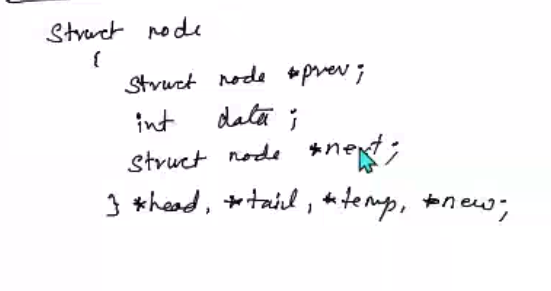 Struct node
{
Struct node *prev;
int data;
Struct node *next;
} *head, *tail, *temp, *new;